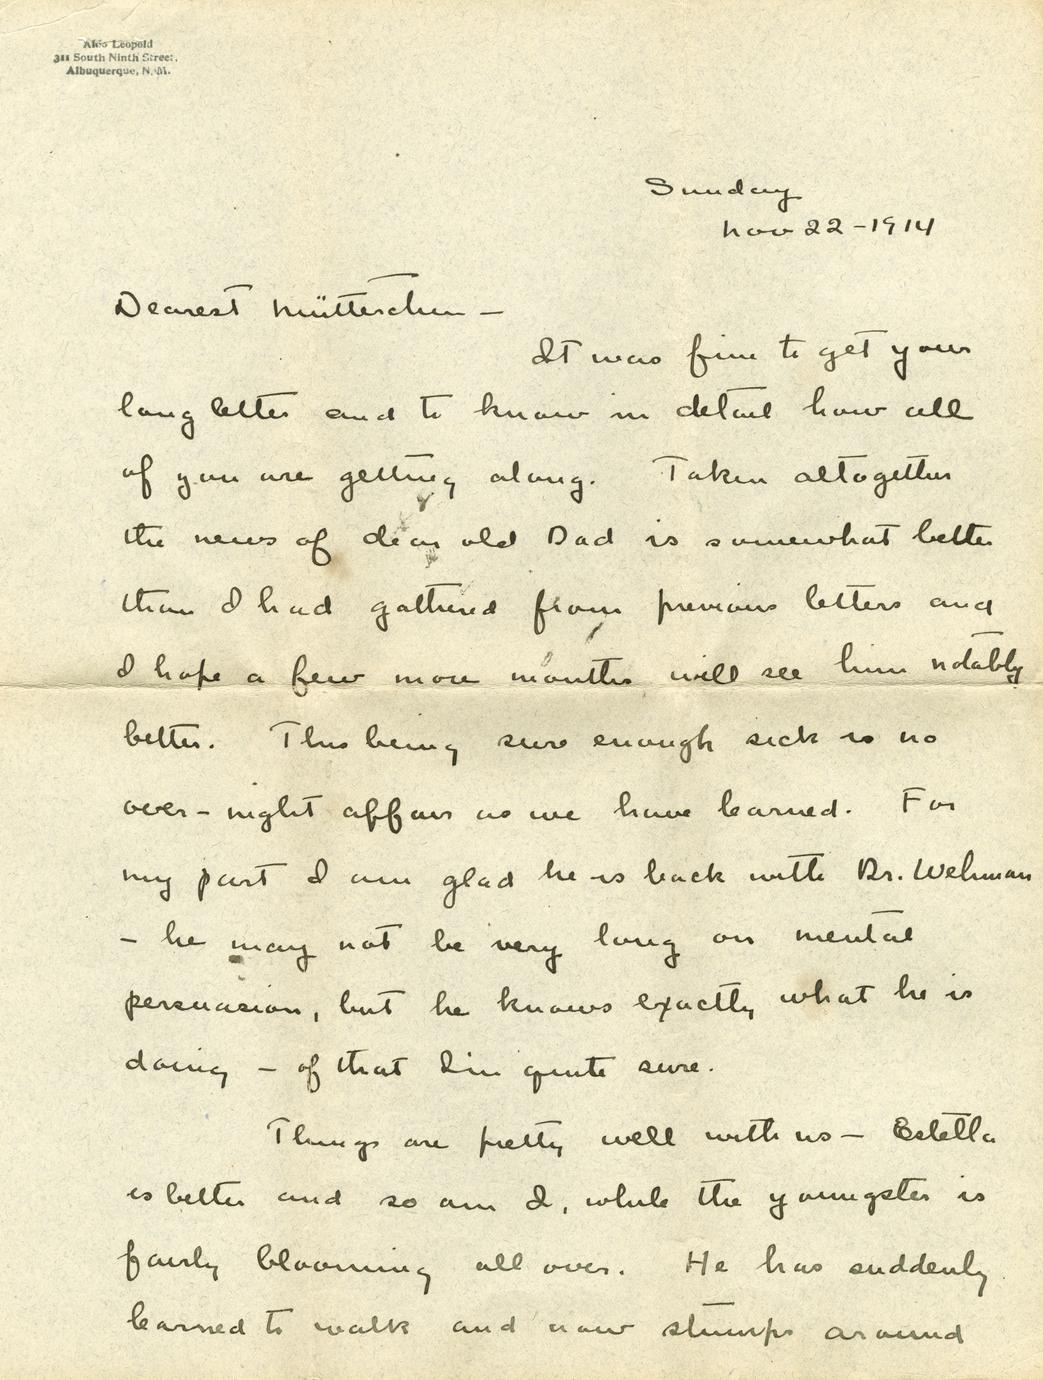 Aldo Leopold
311 South Ninth Street.
Albuquerque, N. M.
Sunday
Nov 22-1914
Dearest Mütterchen —
It was fine to get your
long letter and to know in detail how all
of you are getting along. Taken altogether
the news of dear old Dad is somewhat better
than I had gathered from previous letters and
I hope a few more months will see him notably
better. This being sure enough sick is no
over-night affair as we have learned. For
my part I am glad he is back with Dr. Wehman
— he may not be very long on mental
persuasion, but he knows exactly what he is
doing — of that I'm quite sure.
Things are pretty well with us — Estella
is better and so am I, while the youngster is
fairly blooming all over. He has suddenly
learned to walk and now stumps around